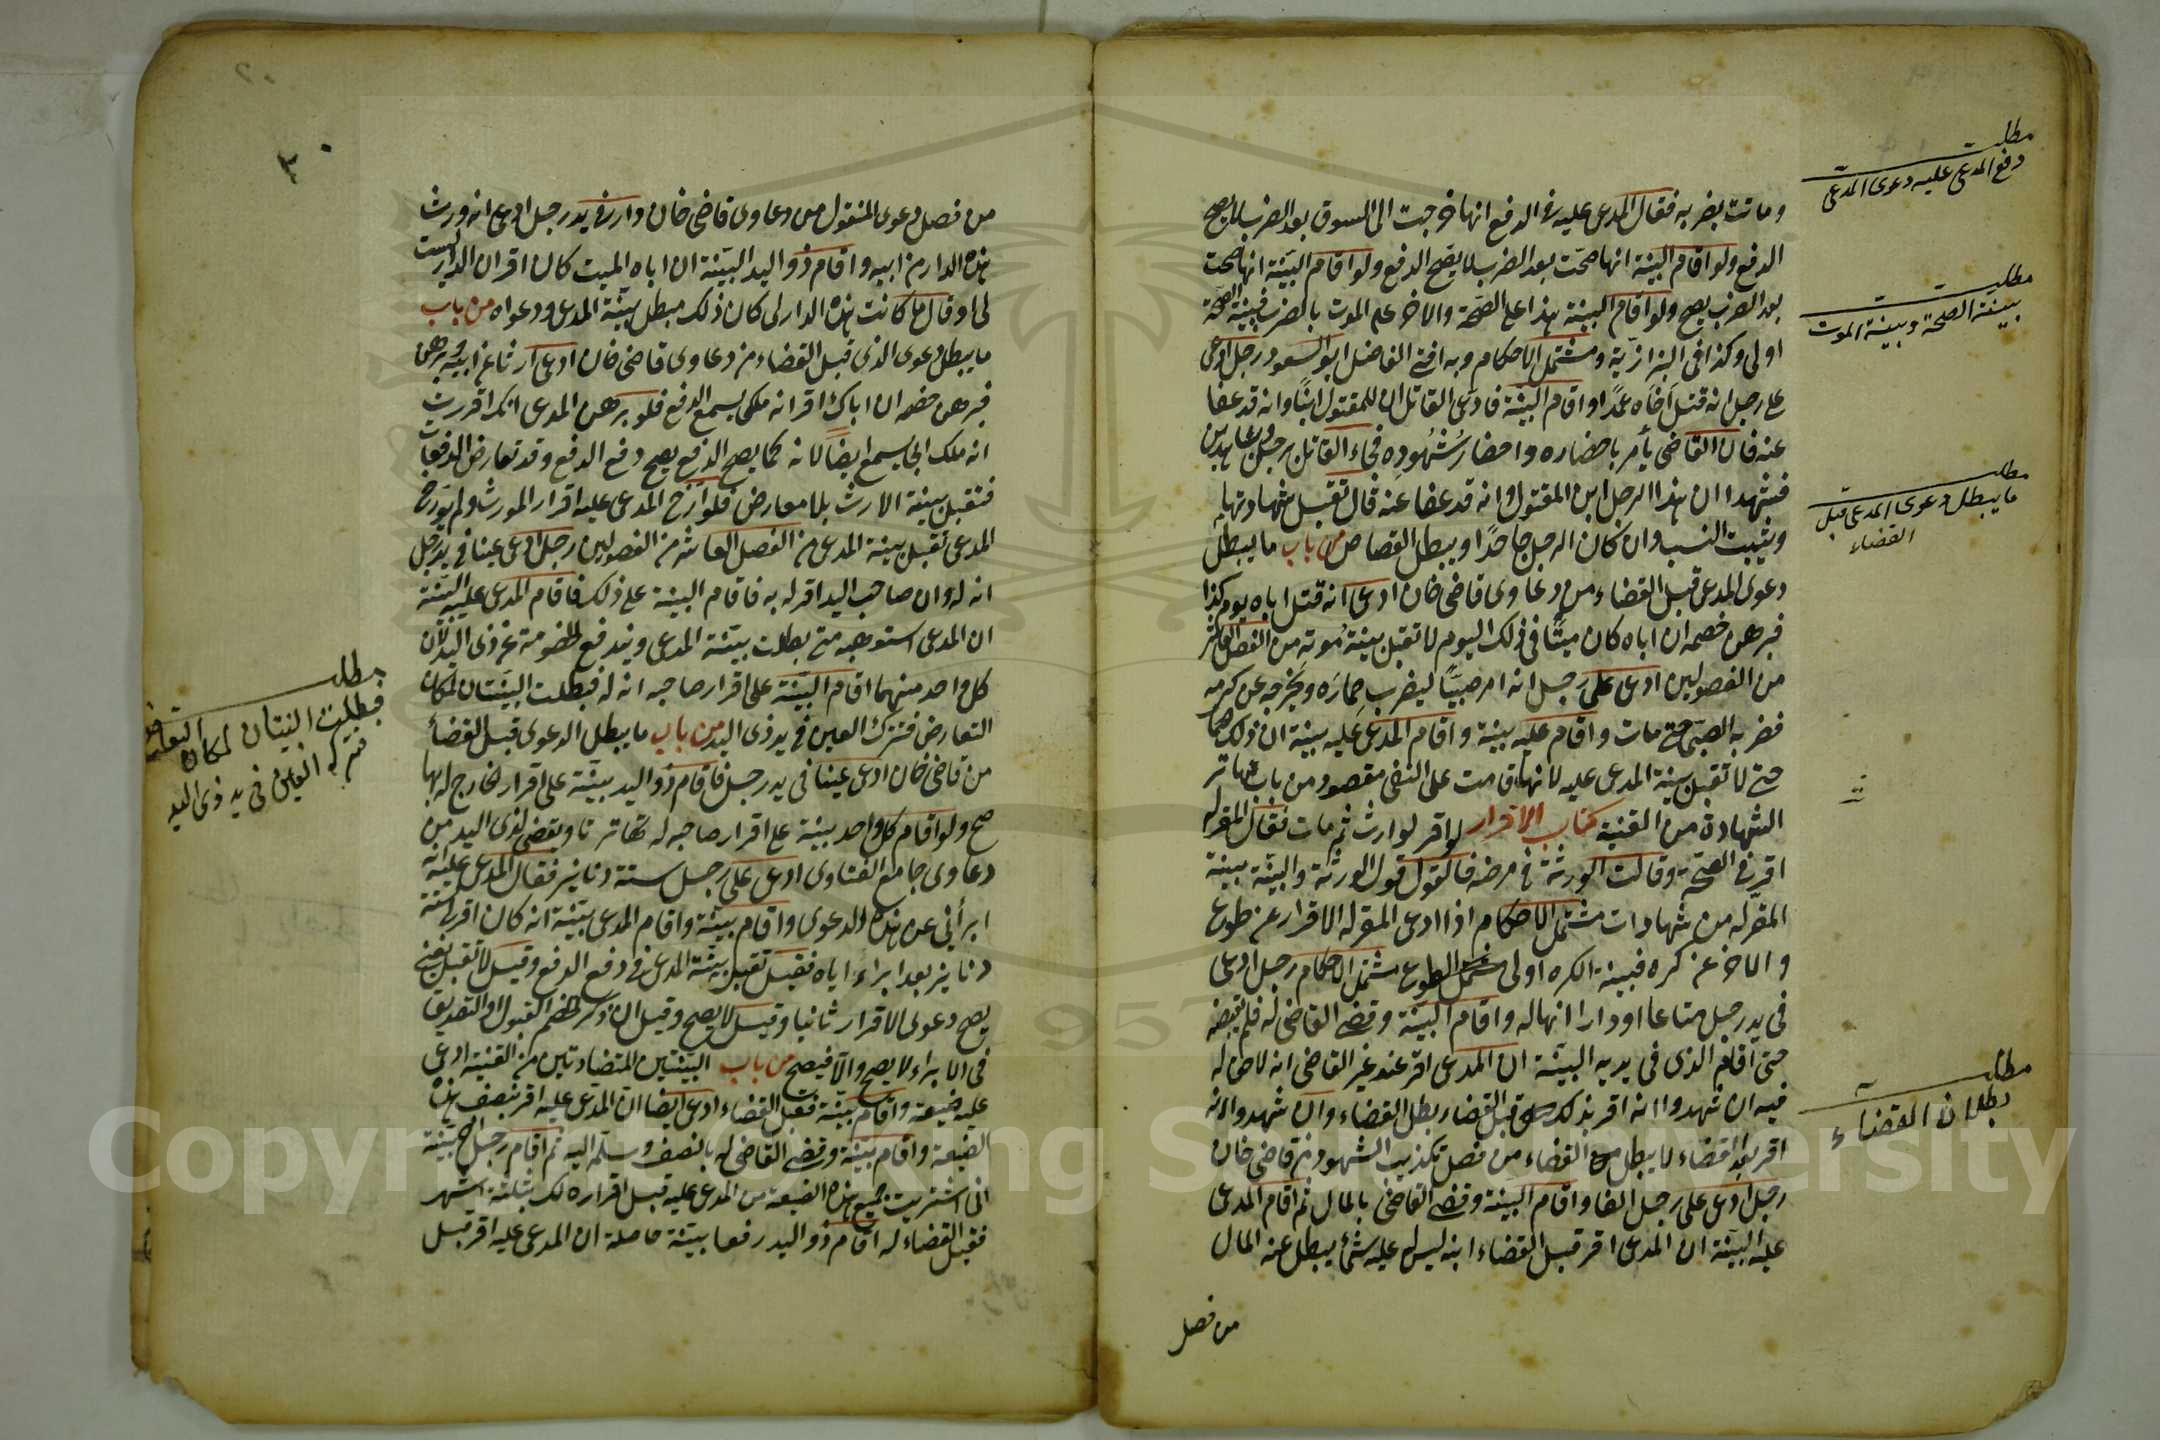 مطلب
دفع المدعى عليه دعوى المدعى
وماتت بضربه فقال المدعى عليه فى الدفع انها خرجت الى السوق بعد الضرب لا يصح
الدفع ولو اقام البينة انها صحت بعد الضرب لا يصح الدفع ولو اقام البينة انها صحت
مطلب
بينة الصحة وبينة الموت
بعد الضرب يصح ولو اقام البينة هذا على الصحة والاخر على الموت بالضرب فبينة الصحة
اولى وكذا فى البزازية ومشتمل الاحكام وبه افتى الفاضل ابو السعود رجل ادعى
على رجل انه قتل اخاه عمدا واقام البينة فادعى القاتل ان للمقتول ابنا وانه قد عفا
عنه فان القاضى يأمر باحضاره واحضار شهوده فجاء القاتل برجل وشاهدين
مطلب
ما يبطل دعوى المدعى قبل
القضاء
فشهدا ان هذا الرجل ابن المقتول وانه قد عفا عنه قال تقبل شهادتهما
ويثبت النسب وان كان الرجل جاحدا ويبطل القصاص من باب ما يبطل
دعوى المدعى قبل القضاء من دعاوى قاضى خان ادعى انه قتل اباه يوم كذا
فبرهن خصمه ان اباه كان ميتا فى ذلك اليوم لا تقبل بينة موته من الفصل العاشر
من الفصولين ادعى على رجل انه امر صبيا ليضرب حماره ويخرجه عن كرمه
فضربه الصبى حتى مات واقام عليه بينة واقام المدعى عليه بينة ان ذلك الحمار
حى لا تقبل بينة المدعى عليه لانها قامت على النفى مقصود من باب تهاتر
الشهادة من القنية كتاب الاقرار لو اقر لوارث ثم مات فقال المقر له
اقر فى الصحة وقالت الورثة فى مرضه فالقول قول الورثة والبينة بينة
المقر له من شهادات مشتمل الاحكام اذا ادعى المقر له الاقرار عن طوع
والاخر عن كره فبينة الكره اولى مشتمل الاحكام رجل ادعى
فى يد رجل متاعا او دارا انها له واقام البينة وقضى القاضى له فلم يقبضه
مطلب
بطلان القضاء
حتى اقام الذى فى يديه البينة ان المدعى اقر عند غير القاضى انه لا حق له
فيه ان شهدوا انه اقر بذلك قبل القضاء بطل القضاء وان شهدوا انه
اقر بعد القضاء لا يبطل القضاء من فصل تكذيب الشهود من قاضى خان
رجل ادعى على رجل الفا واقام البينة وقضى القاضى بالمال ثم اقام المدعى
عليه البينة ان المدعى اقر قبل القضاء انه ليس له عليه شئ يبطل عنه المال
من فصل
٣٠
من فصل دعوى المنقول من دعاوى قاضى خان دار فى يد رجل ادعى انه ورث
هذه الدار من ابيه واقام ذو اليد البينة ان اباه الميت كان اقر ان الدار ليست
لى او قال ما كانت هذه الدار لى كان ذلك مبطل بينة المدعى ودعواه من باب
ما يبطل دعوى الذى قبل القضاء من دعاوى قاضى خان ادعى ارثا عن ابيه وبرهن
فبرهن خصمه ان اباك اقر انه ملكى يسمع الدفع فلو برهن المدعى انك اقررت
انه ملك ابى يسمع ايضا لانه كما يصح الدفع يصح دفع الدفع وقد تعارض الدفعات
فتقبل بينة الارث بلا معارض فلو ارخ المدعى عليه اقرار المورث ولم يورخ
المدعى تقبل بينة المدعى من الفصل العاشر من الفصولين رجل ادعى عينا فى يد رجل
انه له وان صاحب اليد اقر له به فاقام البينة على ذلك فاقام المدعى عليه البينة
ان المدعى استوهبه منى بطلت بينة المدعى ويندفع الخصومة عن ذى اليد لان
كل واحد منهما اقام البينة على اقرار صاحبه انه له فبطلت البينتان لمكان
مطلب
فبطلت البينتان لمكان التعارض
فترك العين فى يد ذى اليد
التعارض فترك العين فى يد ذى اليد من باب ما يبطل الدعوى قبل القضاء
من قاضى خان ادعى عينا فى يد رجل فاقام ذو اليد بينة على اقرار الخارج له بها
صح ولو اقام كل واحد بينة على اقرار صاحبه له تهاترتا ويقضى لذى اليد من
دعاوى جامع الفتاوى ادعى على رجل ستة دنانير فقال المدعى عليه انه
ابرأنى عن هذه الدعوى واقام بينة واقام المدعى بينة انه كان اقر بستة
دنانير بعد ابراءى اياه فقيل تقبل بينة المدعى فى دفع الدفع وقيل لا تقبل يعنى
يصح دعوى الاقرار ثانيا وقيل لا يصح وقيل ان ذكر الخصم القبول او التصديق
فى الابراء لا يصح والا فيصح من باب البينتين المتضادتين من القنية ادعى
عليه ضيعة واقام بينة فقبل القضاء ادعى ايضا ان المدعى عليه اقر بنصف هذه
الضيعة واقام بينة وقضى القاضى له بالنصف وسلمه اليه ثم اقام رجل اخر بينة
انى اشتريت جميع هذه الضيعة من المدعى عليه قبل اقراره لك بثلثة اشهر
فقبل القضاء له اقام ذو اليد رفعا بينة حاصلة ان المدعى عليه اقر قبل
Copyright © King Saud University
1957